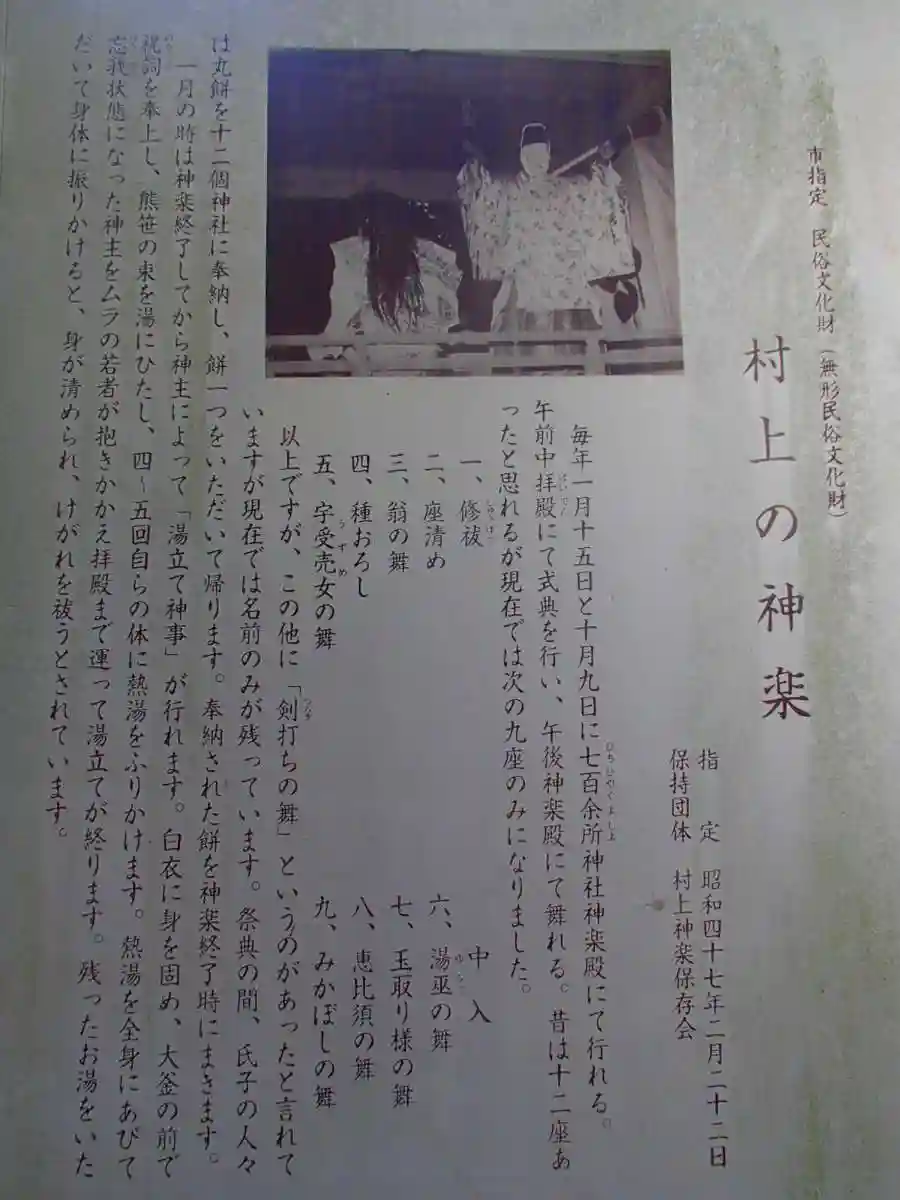 市指定　民俗文化財（無形民俗文化財）
村上の神楽
指　定　昭和四十七年二月二十二日
保持団体　村上神楽保存会
毎年一月十五日と十月九日に七百余所神社神楽殿にて行れる。
午前中拝殿にて式典を行い、午後神楽殿にて舞れる。昔は十二座あ
ったと思れるが現在では次の九座のみになりました。
一、修祓
二、座清め
三、翁の舞
四、種おろし
五、宇受売女の舞
中入
六、湯巫の舞
七、玉取り様の舞
八、恵比須の舞
九、みかぼしの舞
以上ですが、この他に「剣打ちの舞」というのがあったと言れて
いますが現在では名前のみが残っています。祭典の間、氏子の人々
は丸餅を十二個神社に奉納し、餅一つをいただいて帰ります。奉納された餅を神楽終了時にまきます。
一月の時は神楽終了してから神主によって「湯立て神事」が行れます。白衣に身を固め、大釜の前で
祝詞を奉上し、熊笹の束を湯にひたし、四〜五回自らの体に熱湯をふりかけます。熱湯を全身にあびて
忘我状態になった神主をムラの若者が抱きかかえ拝殿まで運って湯立てが終ります。残ったお湯をいた
だいて身体に振りかけると、身が清められ、けがれを祓うとされています。